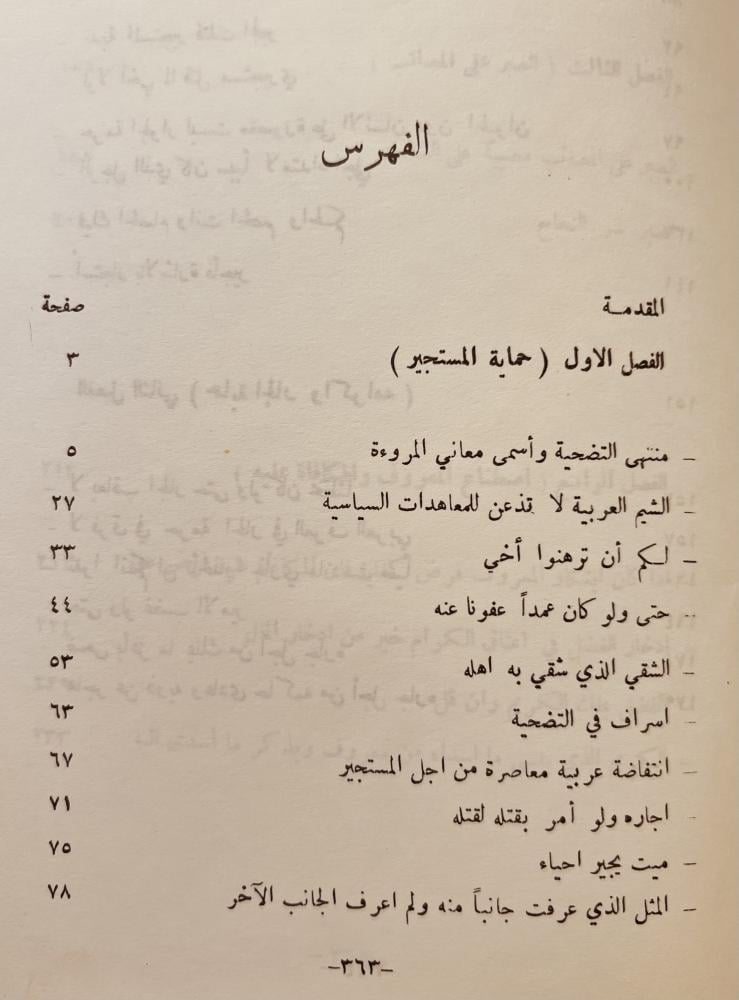 الفهرس
المقدمـة صفحة
الفصل الاول ( حماية المستجير ) ٣
– منتهى التضحية وأسمى معاني المروءة ٥
– الشيم العربية لا تذعن للمعاهدات السياسية ٢٧
– لـكم أن ترهنوا أخي ٣٣
– حتى ولو كان عمداً عفونا عنه ٤٤
– الشقي الذي شقي به اهله ٥٣
– اسراف في التضحية ٦٣
– انتفاضة عربية معاصرة من اجل المستجير ٦٧
– اجاره ولو أمر بقتله لقتله ٧١
– ميت يجير احياء ٧٥
– المثل الذي عرفت جانباً منه ولم اعرف الجانب الآخر ٧٨
–٣٦٣–